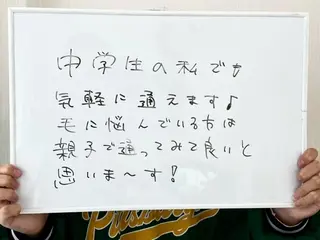 中学生の私でも
気軽に通えます♪
毛に悩んでいる方は
親子で通ってみて良いと
思いま〜す!